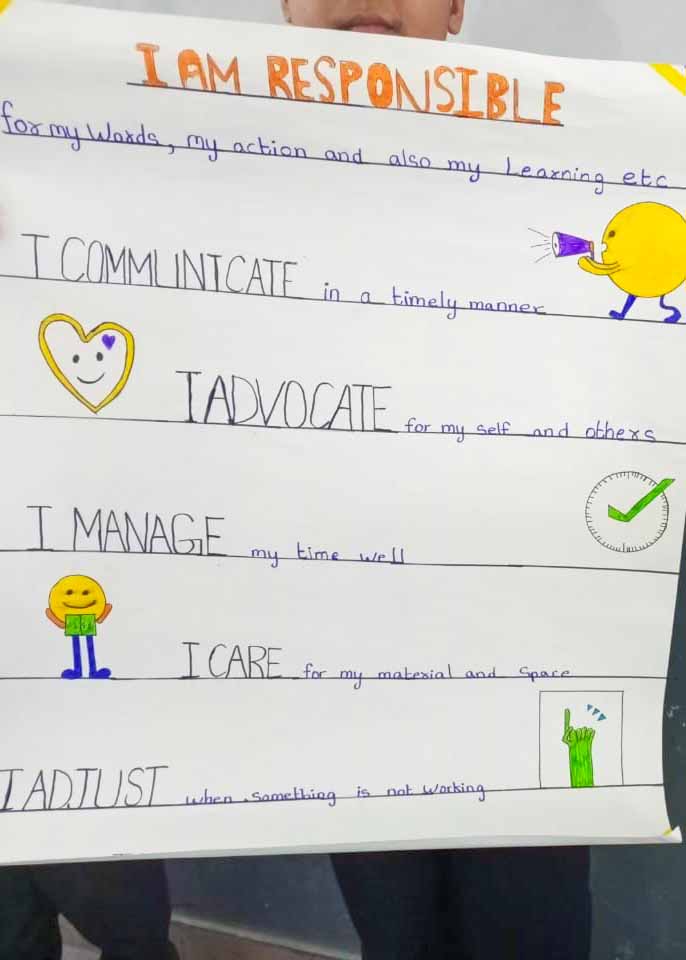 I AM RESPONSIBLE
for my Words, my action and also my Learning etc
I COMMUNICATE in a timely manner
I ADVOCATE for my self and others
I MANAGE my time well
I CARE for my material and Space
I ADJUST when something is not working